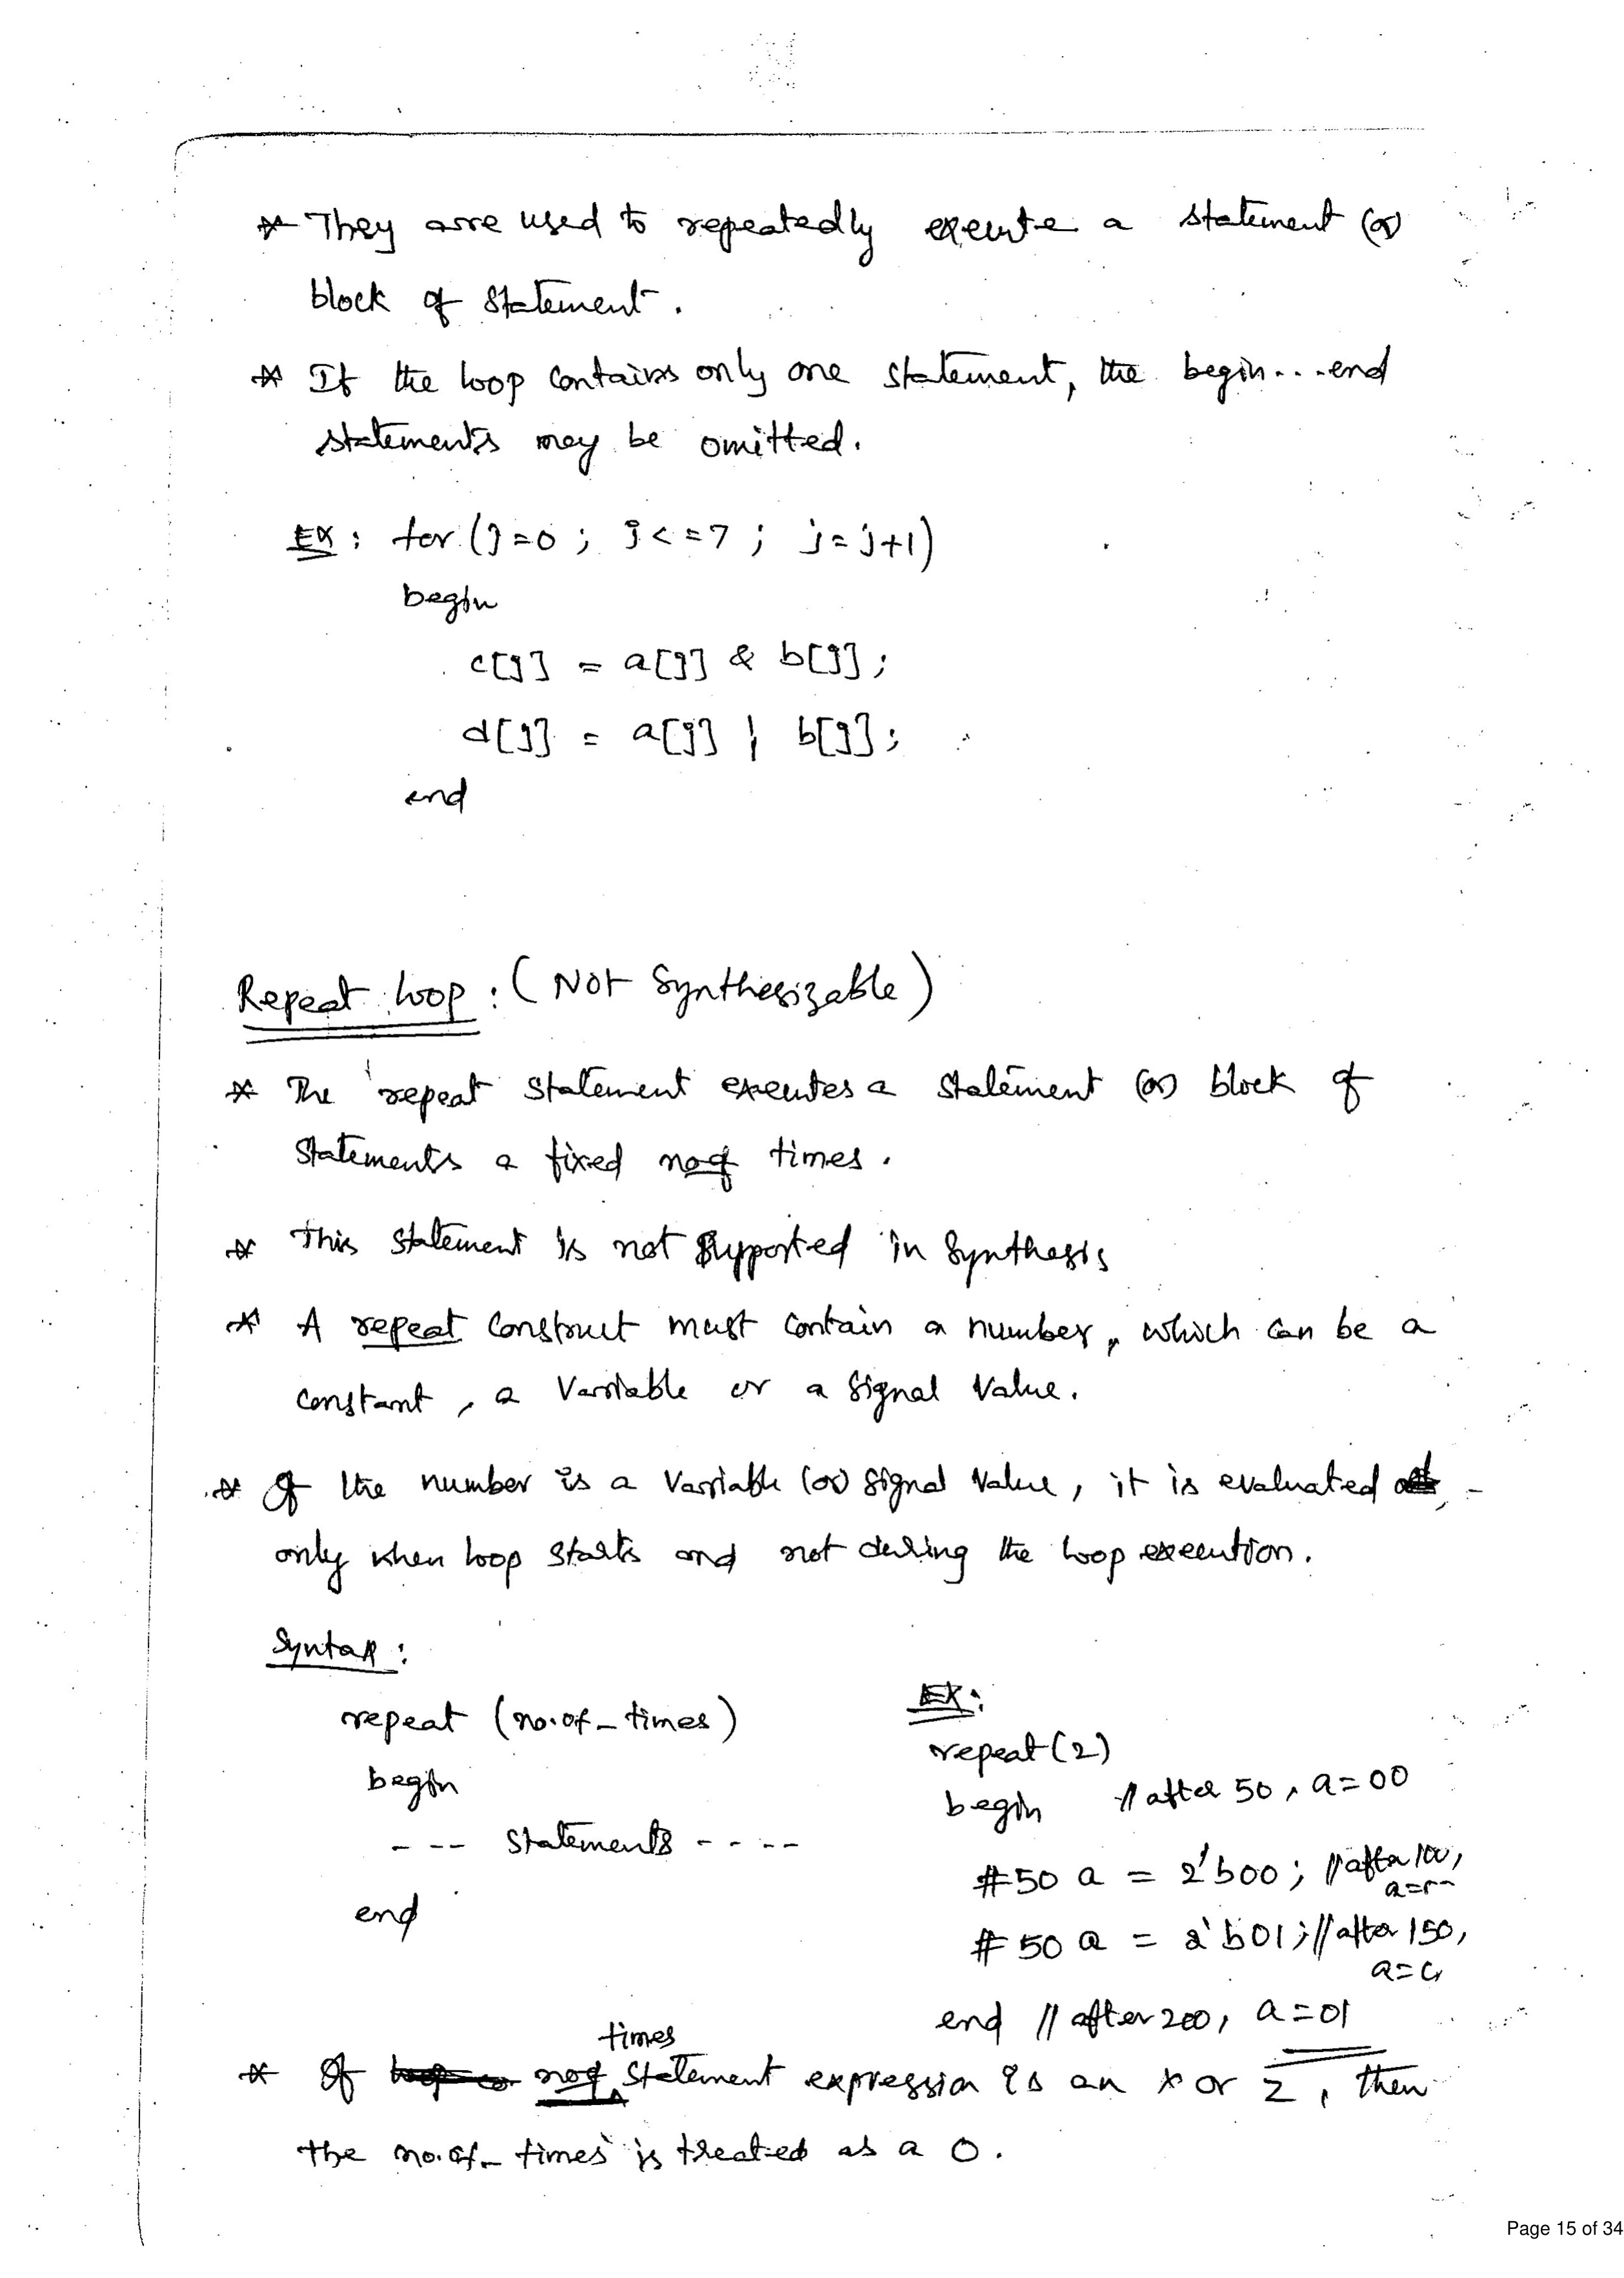 * They are used to repeatedly execute a statement (or)
block of statement.
* If the loop contains only one statement, the begin...end
statements may be omitted.
EX: for (j=0 ; j<=7 ; j=j+1)
begin
c[j] = a[j] & b[j];
d[j] = a[j] | b[j];
end
Repeat loop: (Not Synthesizable)
* The repeat statement executes a statement (or) block of
statements a fixed no.of times.
* This statement is not supported in synthesis
* A repeat construct must contain a number, which can be a
constant, a variable or a signal value.
* If the number is a variable (or) signal value, it is evaluated
only when loop starts and not during the loop execution.
Syntax:
repeat (no.of_times)
begin
--- statements ----
end
EX:
repeat(2)
begin // after 50, a=00
#50 a = 2'b00; // after 100,
a=
#50 a = 2'b01; // after 150,
a=
end // after 200, a=01
times
* If no.of statement expression is an x or z, then
the no.of_times is treated as a 0.
Page 15 of 34